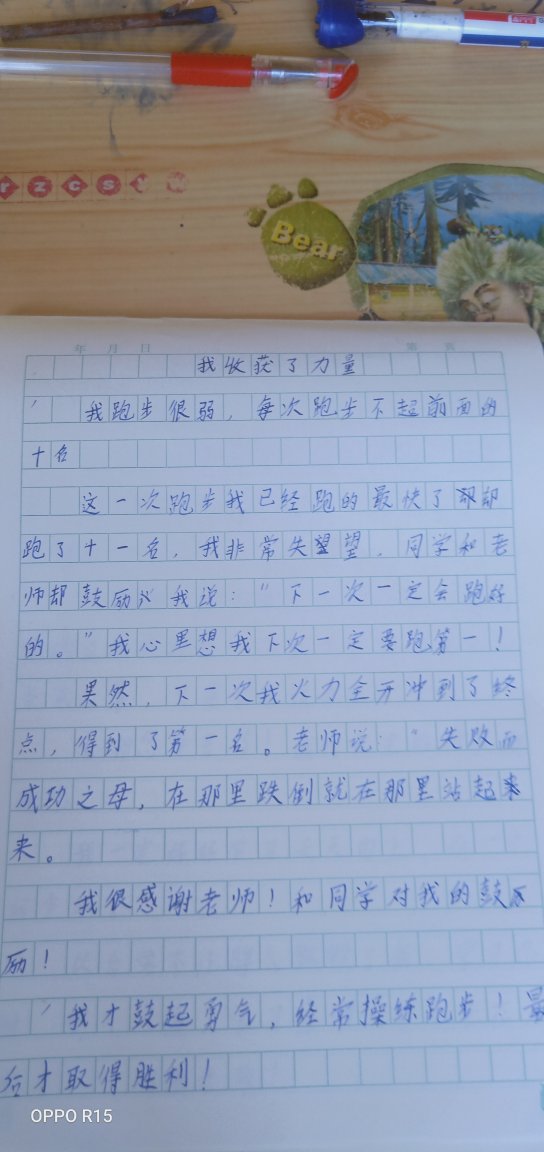 rzcs
Bear
年 月 日
第 页
我收获了力量
我跑步很弱，每次跑步不起前面的
十名
这一次跑步我已经跑的最快了却
跑了十一名，我非常失望，同学和老
师却鼓励我说：“下一次一定会跑好
的。”我心里想我下次一定要跑第一！
果然，下一次我火力全开冲到了终
点，得到了第一名。老师说：“失败而
成功之母，在那里跌倒就在那里站起
来。
我很感谢老师！和同学对我的鼓
励！
我才鼓起勇气，经常操练跑步！最
后才取得胜利！
OPPO R15